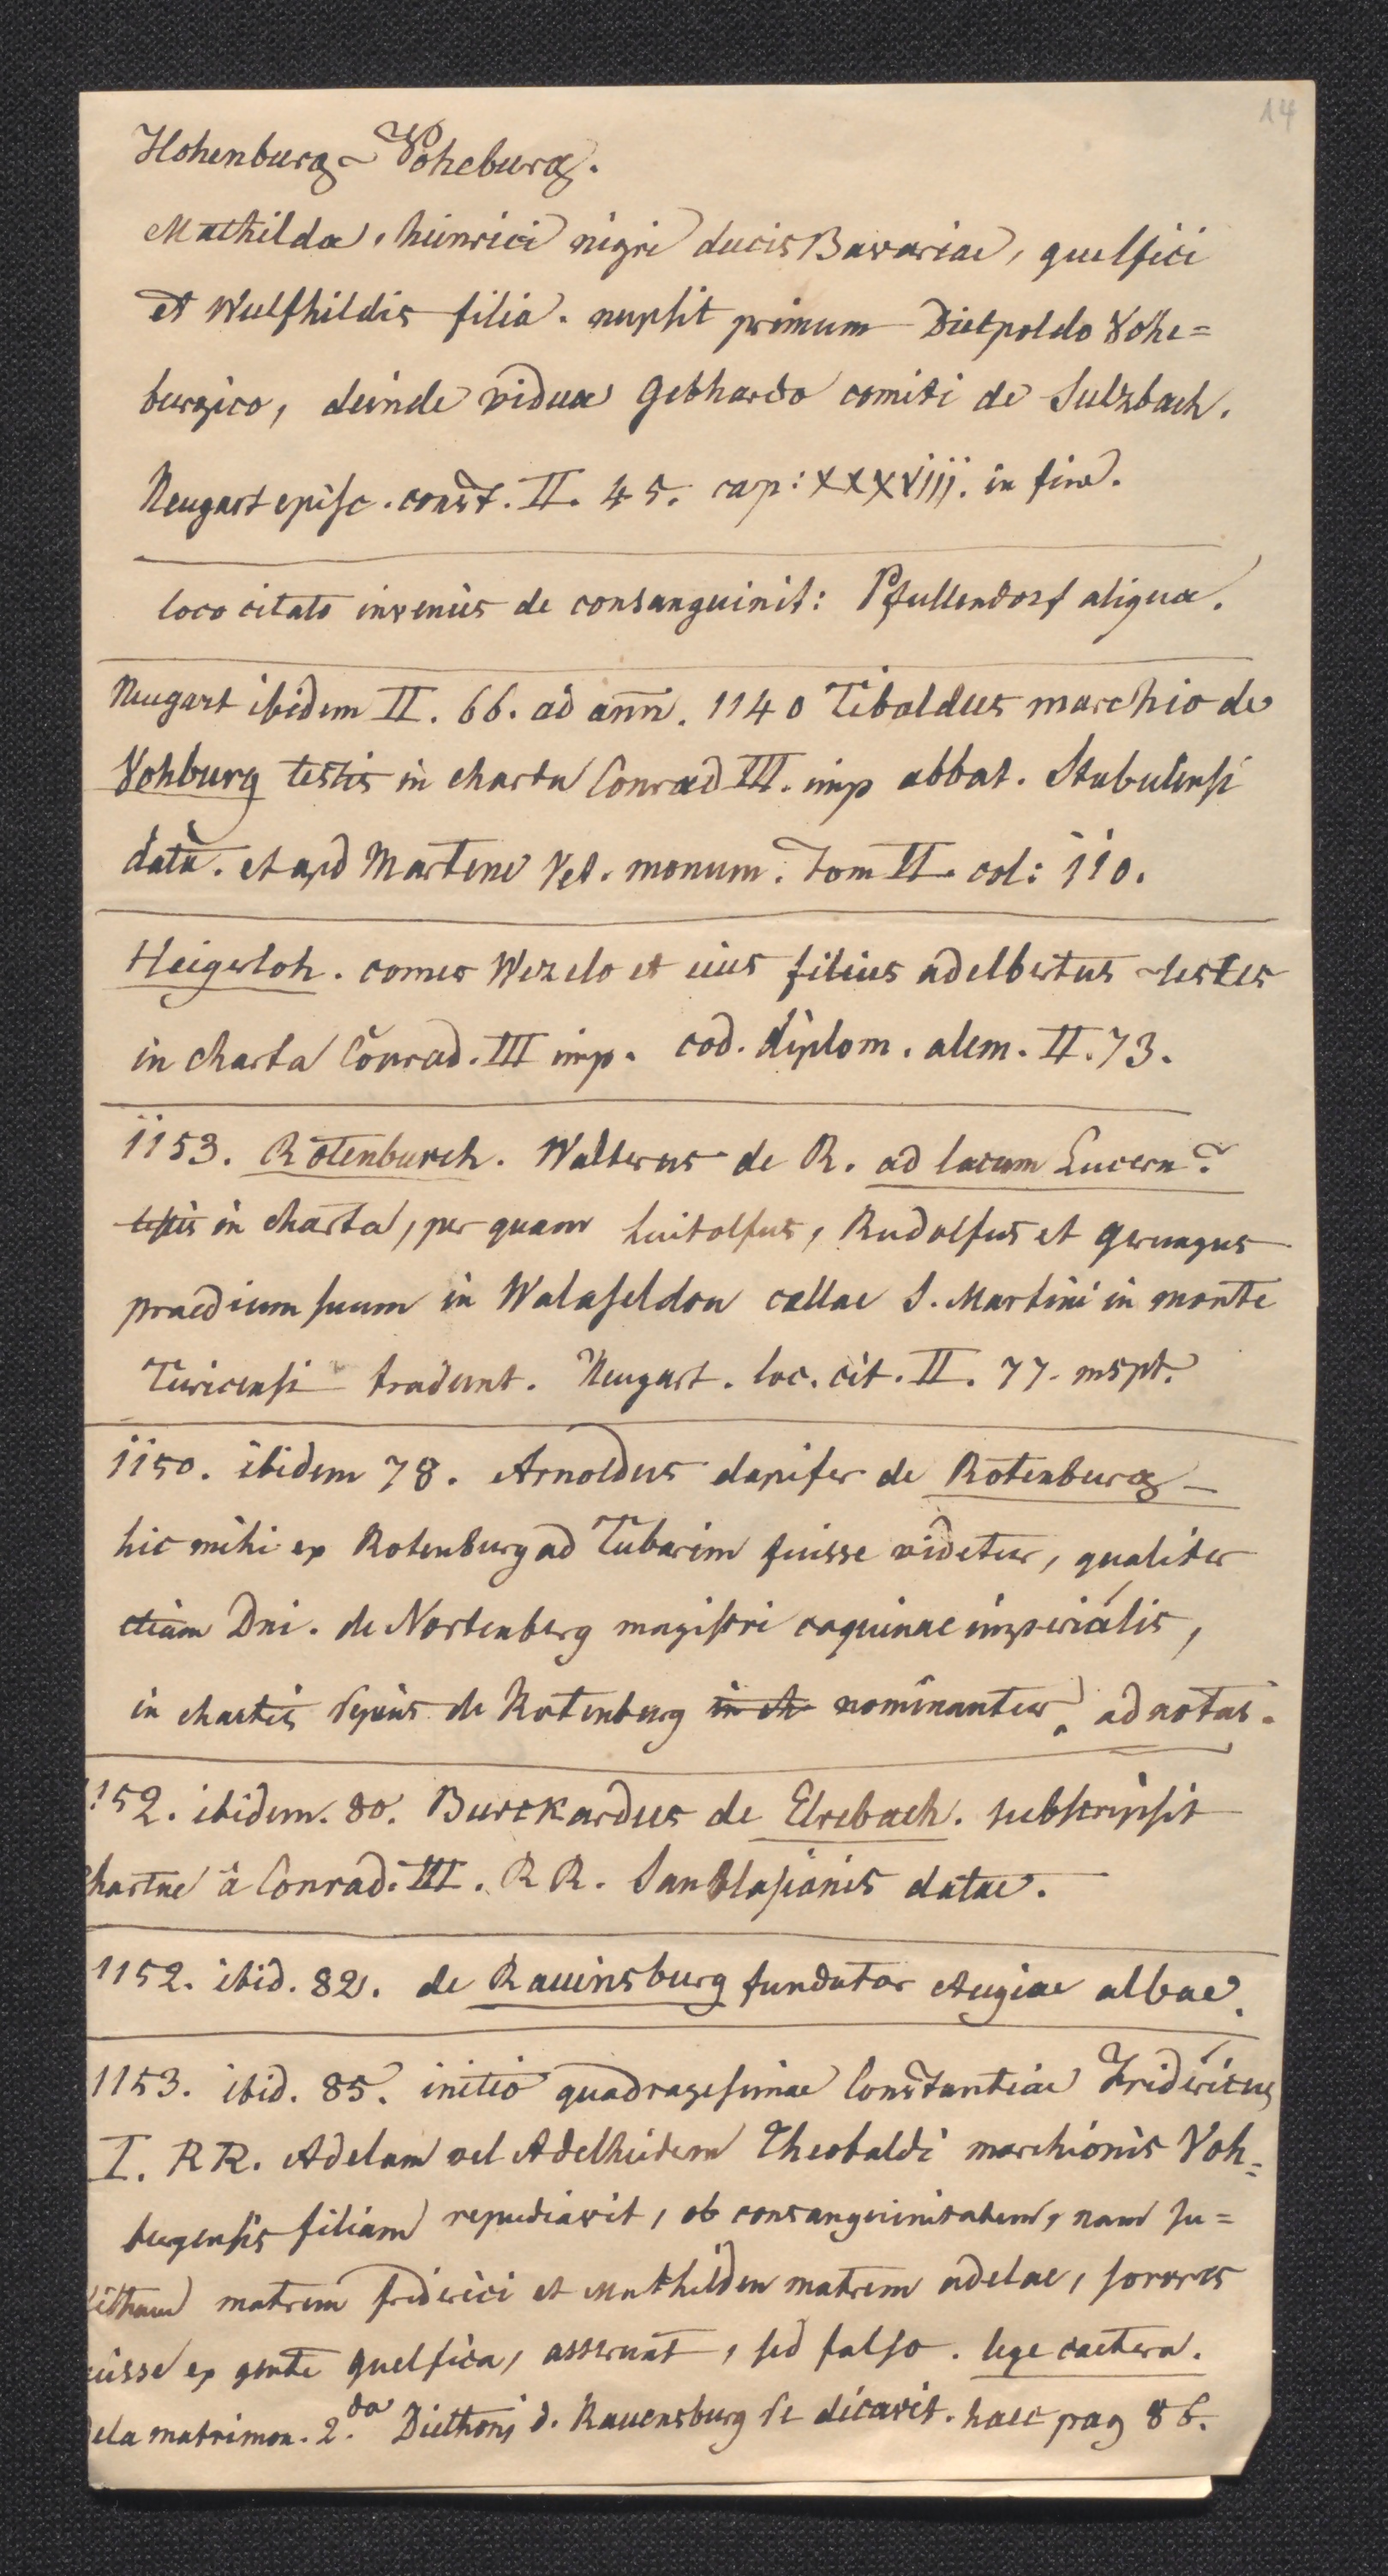 14
Hohenburg - Voheburg.
Mathilda, heinrici nigri ducis Bavariae, guelfici
et Wulfhildis filia. nupsit primum Dietpoldo Vohe=
burgico, deinde vidua Gebhardo comiti de Sulzbach.
Neugart episc. const. II. 45. cap: XXXVIII. in fine.
loco citato invenies de consanguinit: Pfullendorf aliqua.
Neugart ibidem II. 66. ad ann. 1140 Tibaldus marchio de
Vohburg testis in charta Conrad III. imp abbat. Stabulensi
data. et apd Martene Vet. monum. Tom II. col: 110.
Heigerloh. comes Wezelo et eius filius adelbertus testes
in charta Conrad. III imp. cod. diplom. alem. II. 73.
1153. Rotenburch. Walterus de R. ad lacum Lucern?
testis in charta, per quam Luitolfus, Rudolfus et gerungus
praedium suum in Walaseldon cellae S. Martini in monte
Turicensi tradunt. Neugart. loc. cit. II. 77. mspt.
1150. ibidem 78. Arnoldus dapifer de Rotenburg -
hic mihi ex Rotenburg ad Tubarim fuisse videtur, qualiter
etiam Dni. de Nortenberg magistri coquinae imperialis,
in chartis sepius de Rotenburg in ch nominantur. ad notas.
1152. ibidem. 80. Burckardus de Elrebach. subscripsit
chartae à Conrad. III. RR. SanBlasianis datae.
1152. ibid. 82. de Rauinsburg fundator Augiae albae.
1153. ibid. 85. initio quadragesimae Constantiae Fridericus
I. RR. Adelam vel Adelheidem Theobaldi marchionis Voh=
burgensis filiam repudiavit, ob consanguinitatem, nam Ju=
ditham matrem friderici et Mathilden matrem adelae, sorores
fuisse ex gente guelfica, asserunt, sed falso. lege caetera.
dela matrimon. 2.do Diethoni d. Rauensburg se dicavit. haec pag 86.